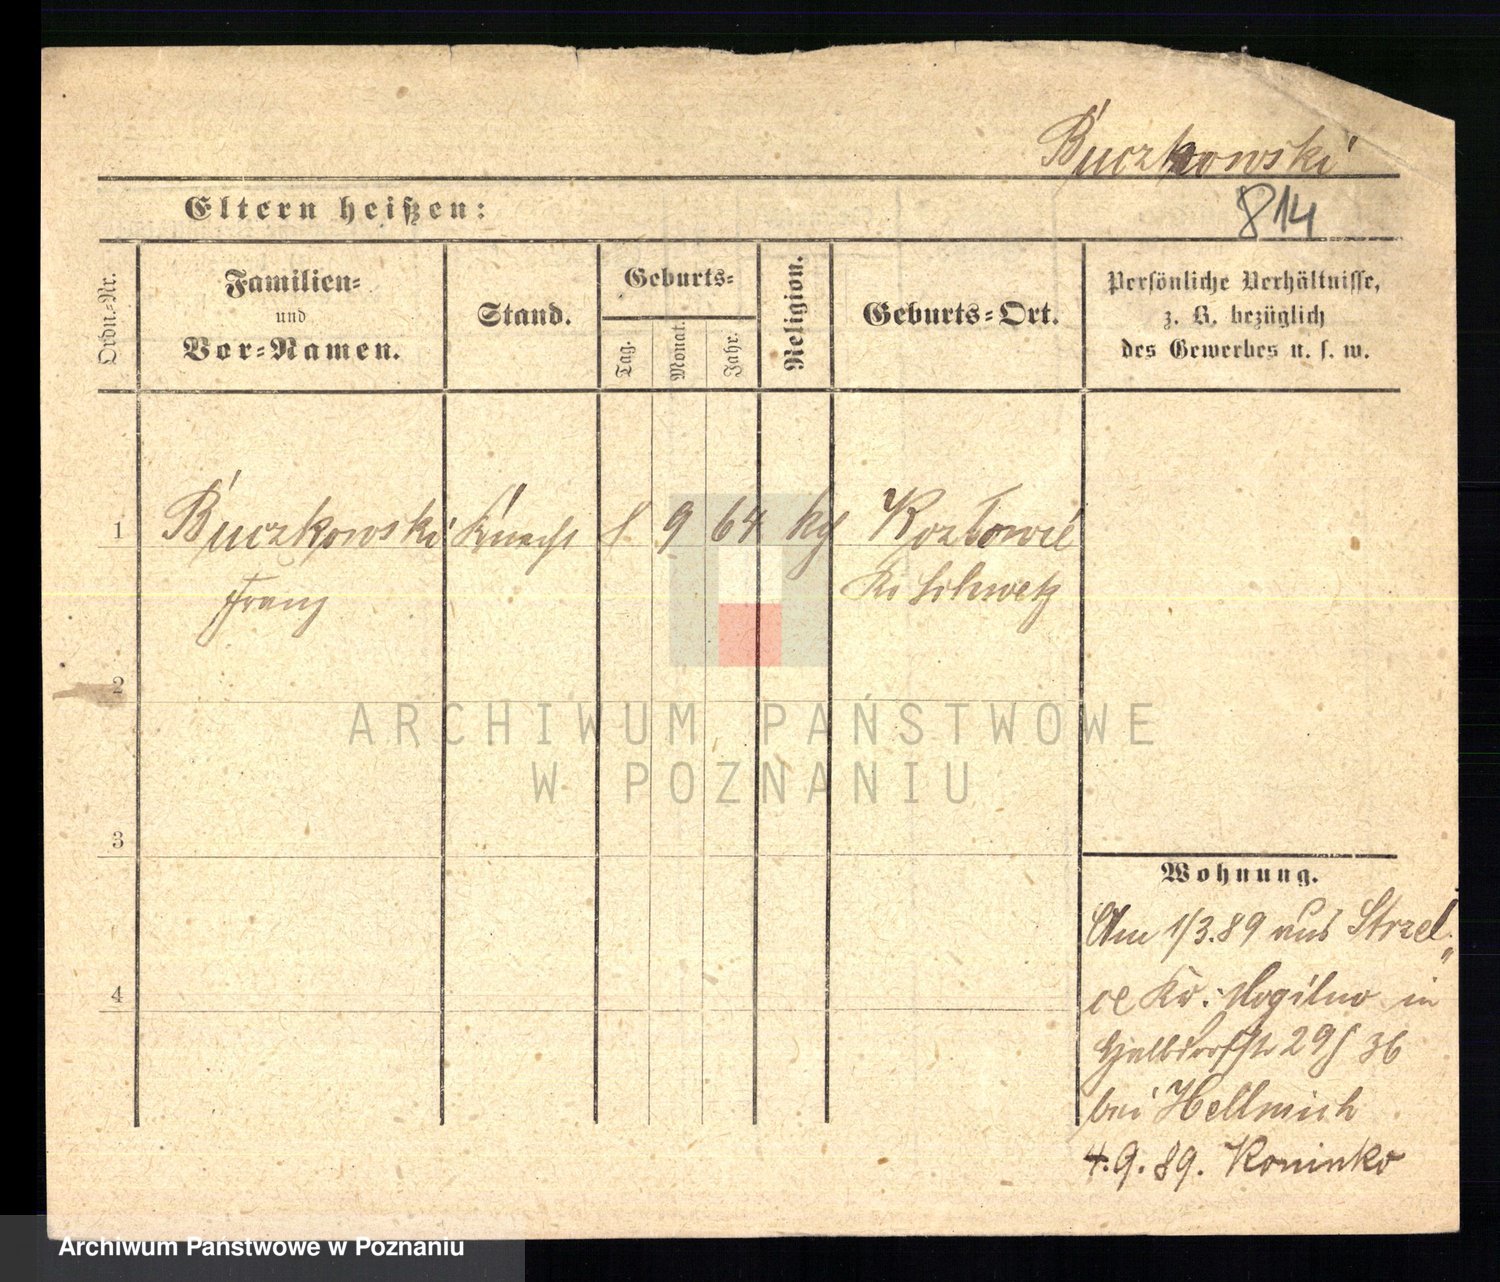 Buczkowski
814
Eltern heißen:
Ordn.-Nr.
Familien-
und
Vor-Namen.
Stand.
Geburts-
Tag.
Monat.
Jahr.
Religion.
Geburts-Ort.
Persönliche Verhältnisse,
z. B. bezüglich
des Gewerbes u. s. w.
1 Buczkowski Knecht 8 9 64 kth
Franz Kr Schwetz
2
3
4
Wohnung.
Am 1/3.89 aus Strzel„
ce Kr. Mogilno in
Halbdorfstr 29/36
bei Hellmich
4.9.89. Koninko
ARCHIWUM PAŃSTWOWE
W POZNANIU
Archiwum Państwowe w Poznaniu